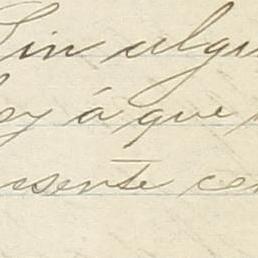 Sin algu
ley á que
esente ce